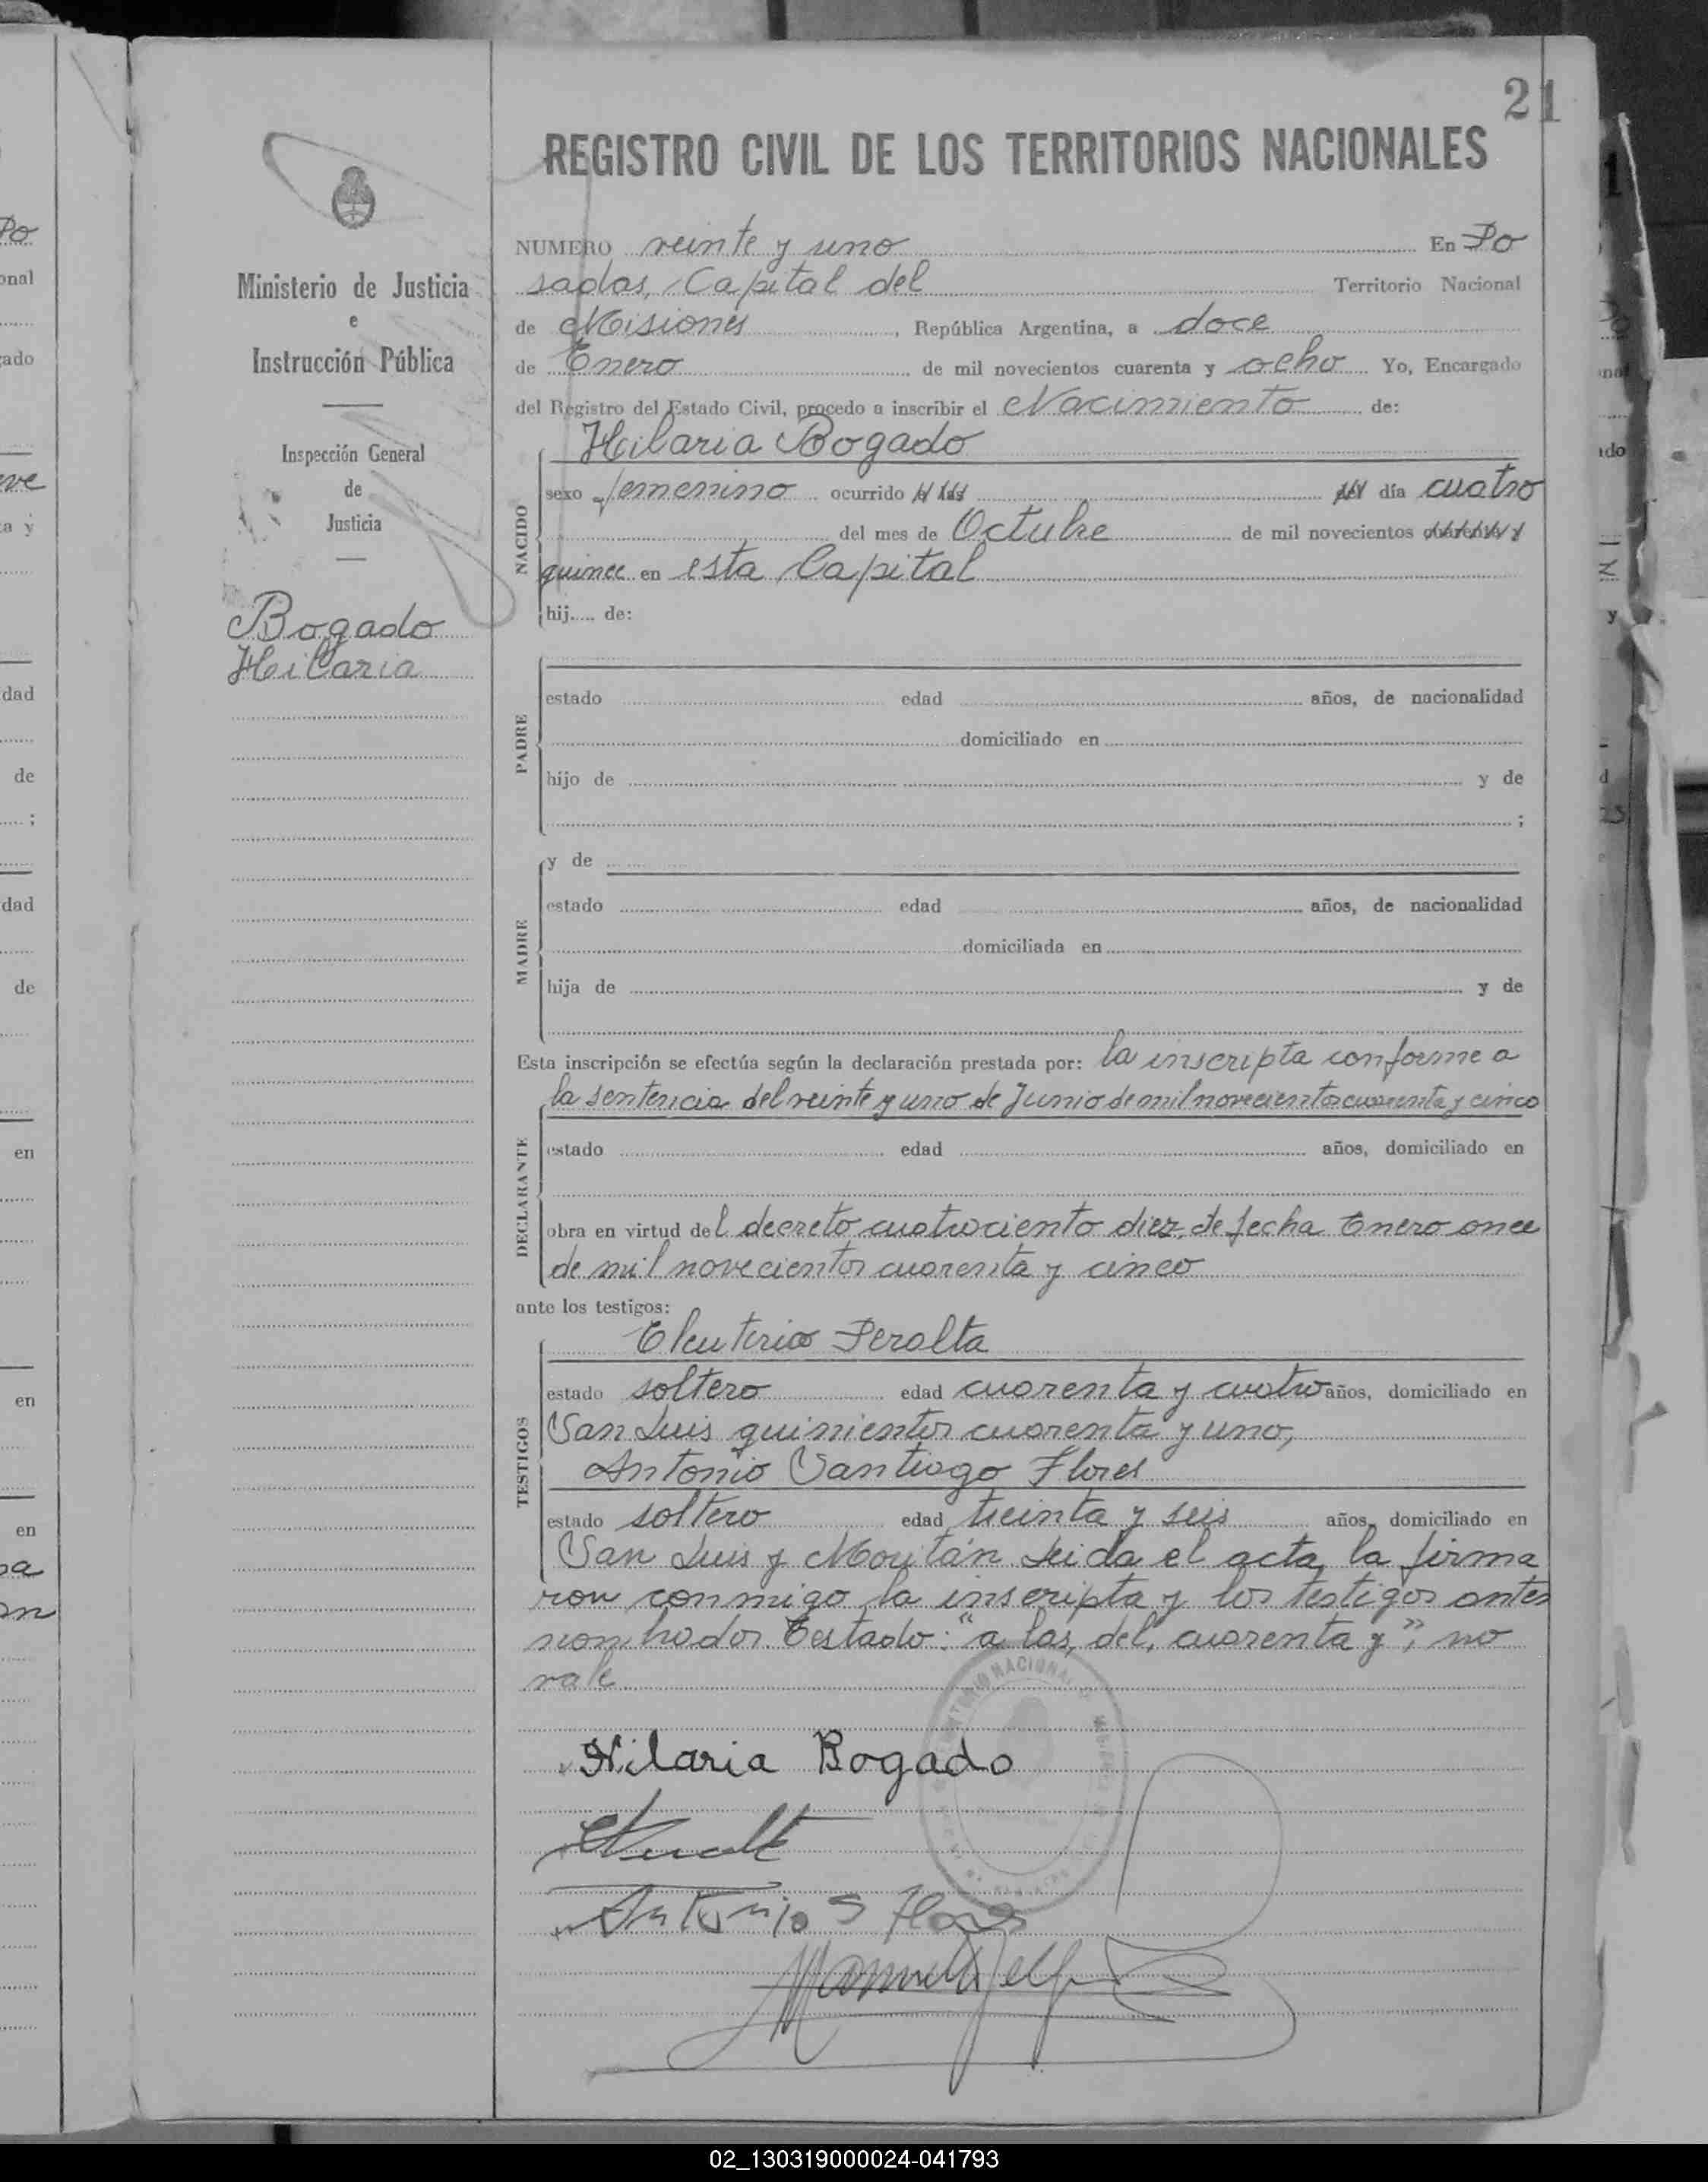 21
REGISTRO CIVIL DE LOS TERRITORIOS NACIONALES
Ministerio de Justicia
e
Instrucción Pública
Inspección General
de
Justicia
Bogado
Hilaria
NUMERO veinte y uno En Po
sadas, Capital del Territorio Nacional
de Misiones, República Argentina, a doce
de Enero de mil novecientos cuarenta y ocho Yo, Encargado
del Registro del Estado Civil, procedo a inscribir el Nacimiento de:
Hilaria Bogado
NACIDO
sexo femenino ocurrido a las del día cuatro
del mes de Octubre de mil novecientos cuarenta y
quince en esta Capital
hij..... de:
PADRE
estado edad años, de nacionalidad
domiciliado en
hijo de y de
;
MADRE
y de
estado edad años, de nacionalidad
domiciliada en
hija de y de
Esta inscripción se efectúa según la declaración prestada por: la inscripta conforme a
la sentencia del veinte y uno de Junio de mil novecientos cuarenta y cinco
DECLARANTE
estado edad años, domiciliado en
obra en virtud del decreto cuatrociento diez, de fecha Enero once
de mil novecientos cuarenta y cinco
ante los testigos:
Eleuterio Peralta
TESTIGOS
estado soltero edad cuarenta y cuatro años, domiciliado en
San Luis quinientos cuarenta y uno,
Antonio Santiago Flores
estado soltero edad treinta y seis años, domiciliado en
San Luis y Moritán Leida el acta, la firma
ron conmigo la inscripta y los testigos antes
nombrados Testado: "a las, del, cuarenta y"; no
vale
Hilaria Bogado
Antonio S Flores
02_130319000024-041793